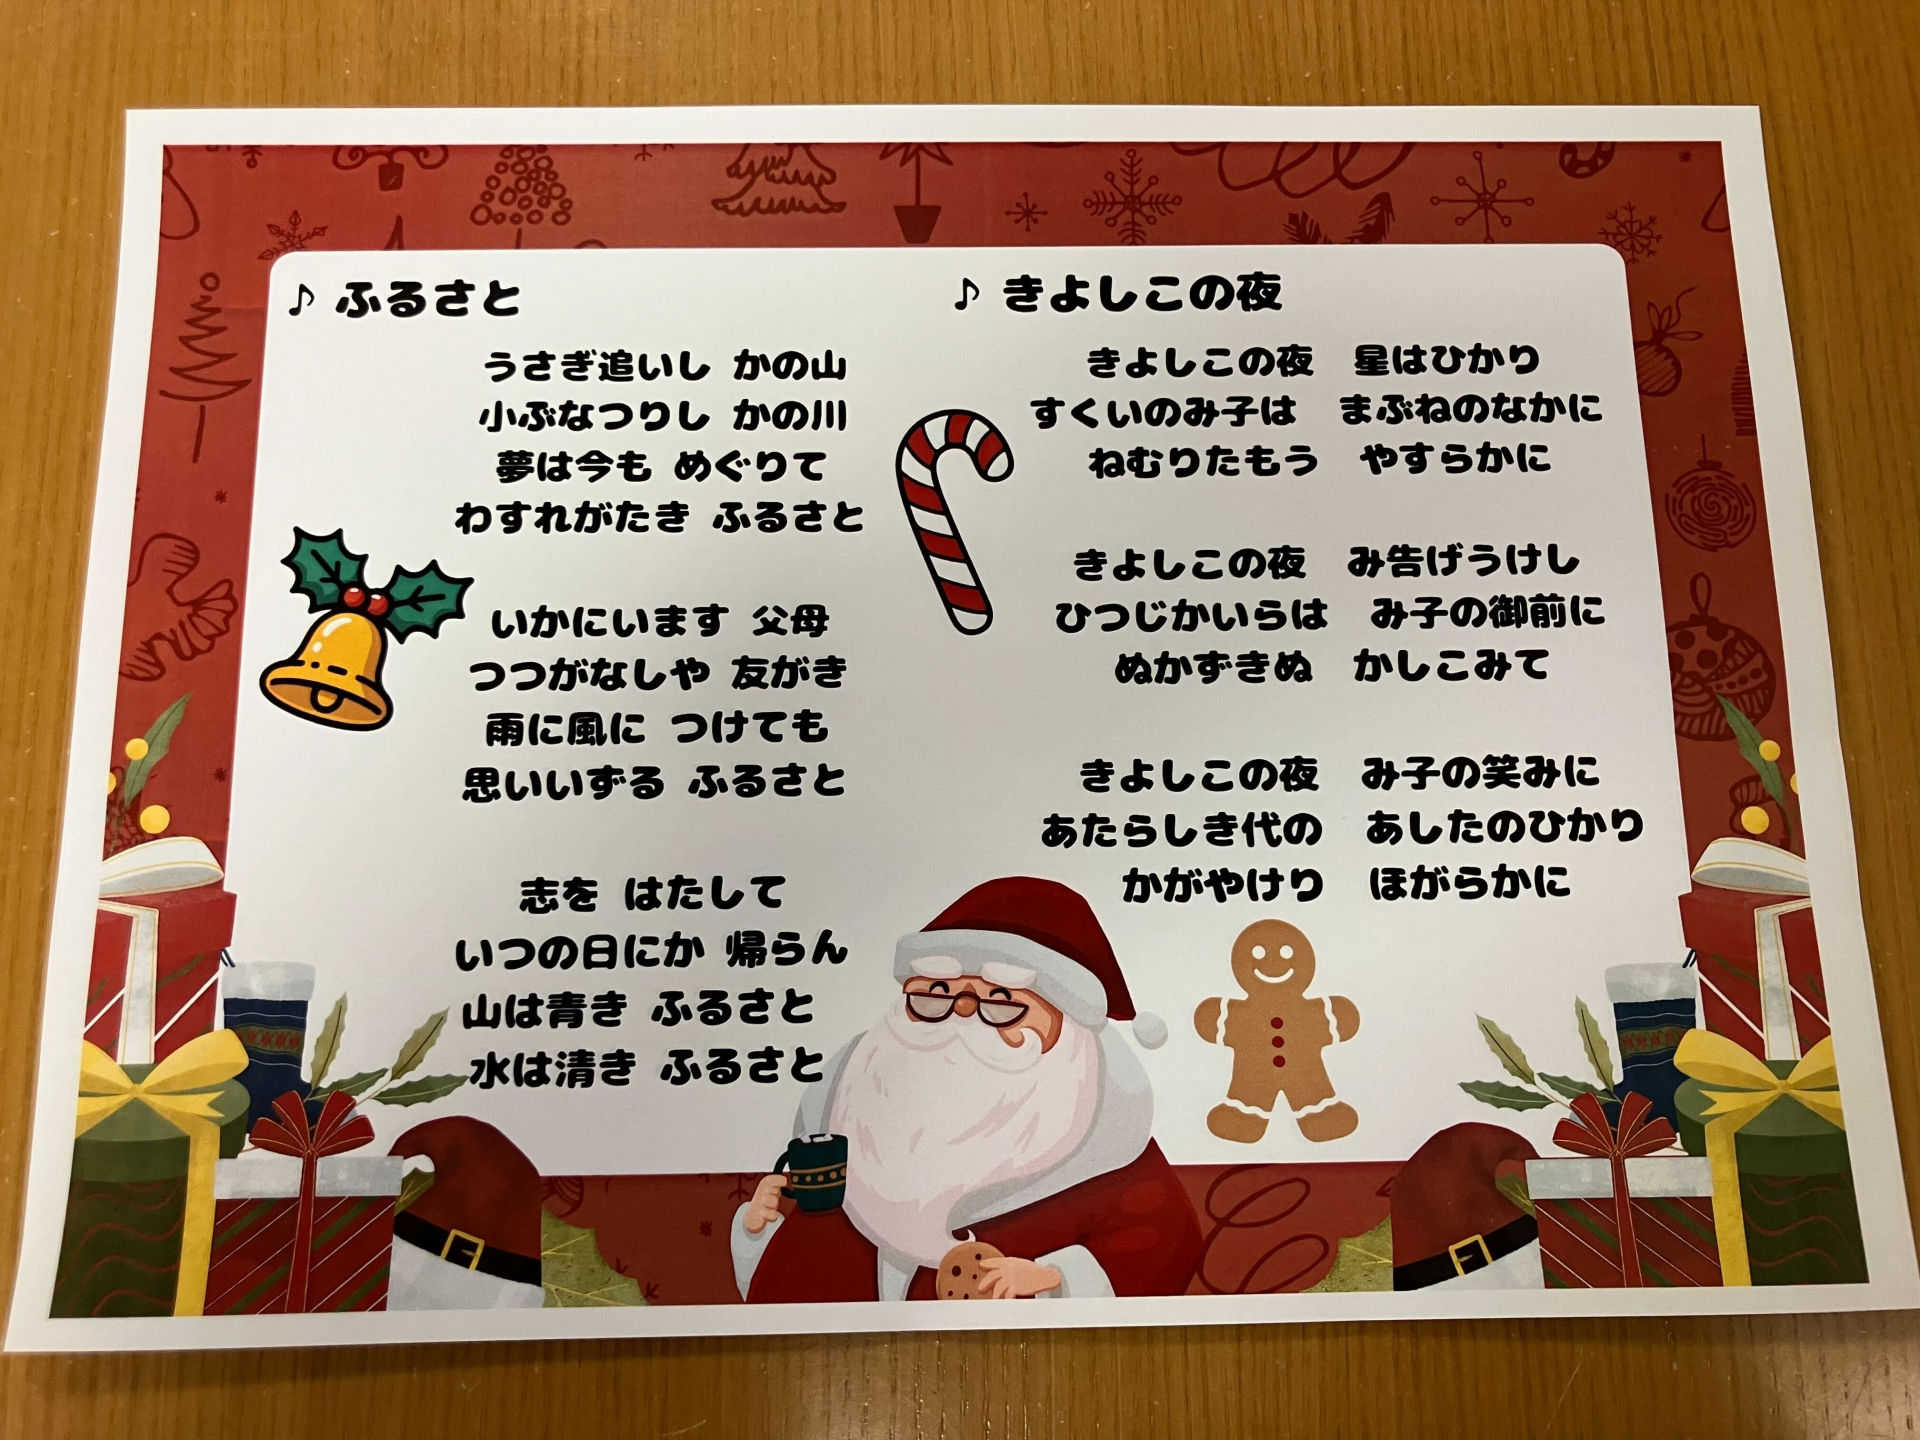 ♪ ふるさと
うさぎ追いし かの山
小ぶなつりし かの川
夢は今も めぐりて
わすれがたき ふるさと
いかにいます 父母
つつがなしや 友がき
雨に風に つけても
思いいずる ふるさと
志を はたして
いつの日にか 帰らん
山は青き ふるさと
水は清き ふるさと
♪ きよしこの夜
きよしこの夜　星はひかり
すくいのみ子は　まぶねのなかに
ねむりたもう　やすらかに
きよしこの夜　み告げうけし
ひつじかいらは　み子の御前に
ぬかずきぬ　かしこみて
きよしこの夜　み子の笑みに
あたらしき代の　あしたのひかり
かがやけり　ほがらかに